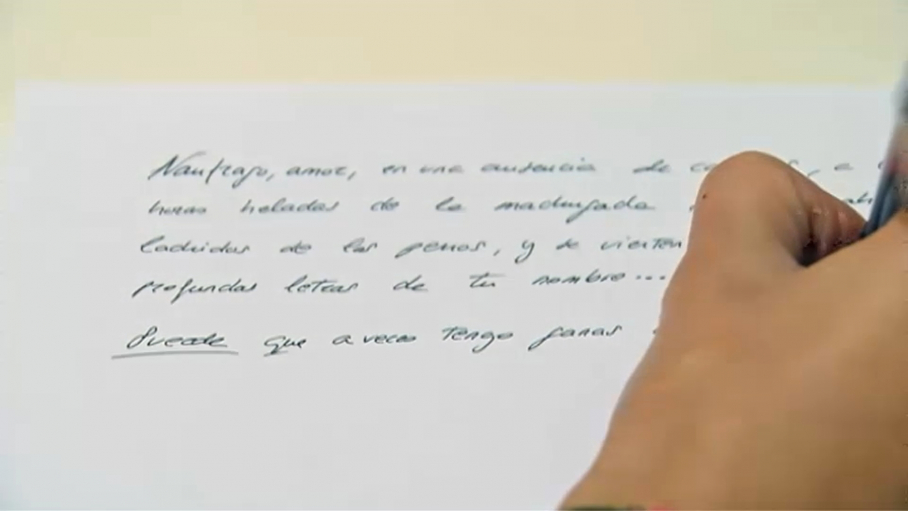 Naufrago, amor, en una ausencia de
horas heladas de la madrugada
ladridos de los perros, y se vierten
profundas letras de tu nombre...
Puede que a veces tengo ganas